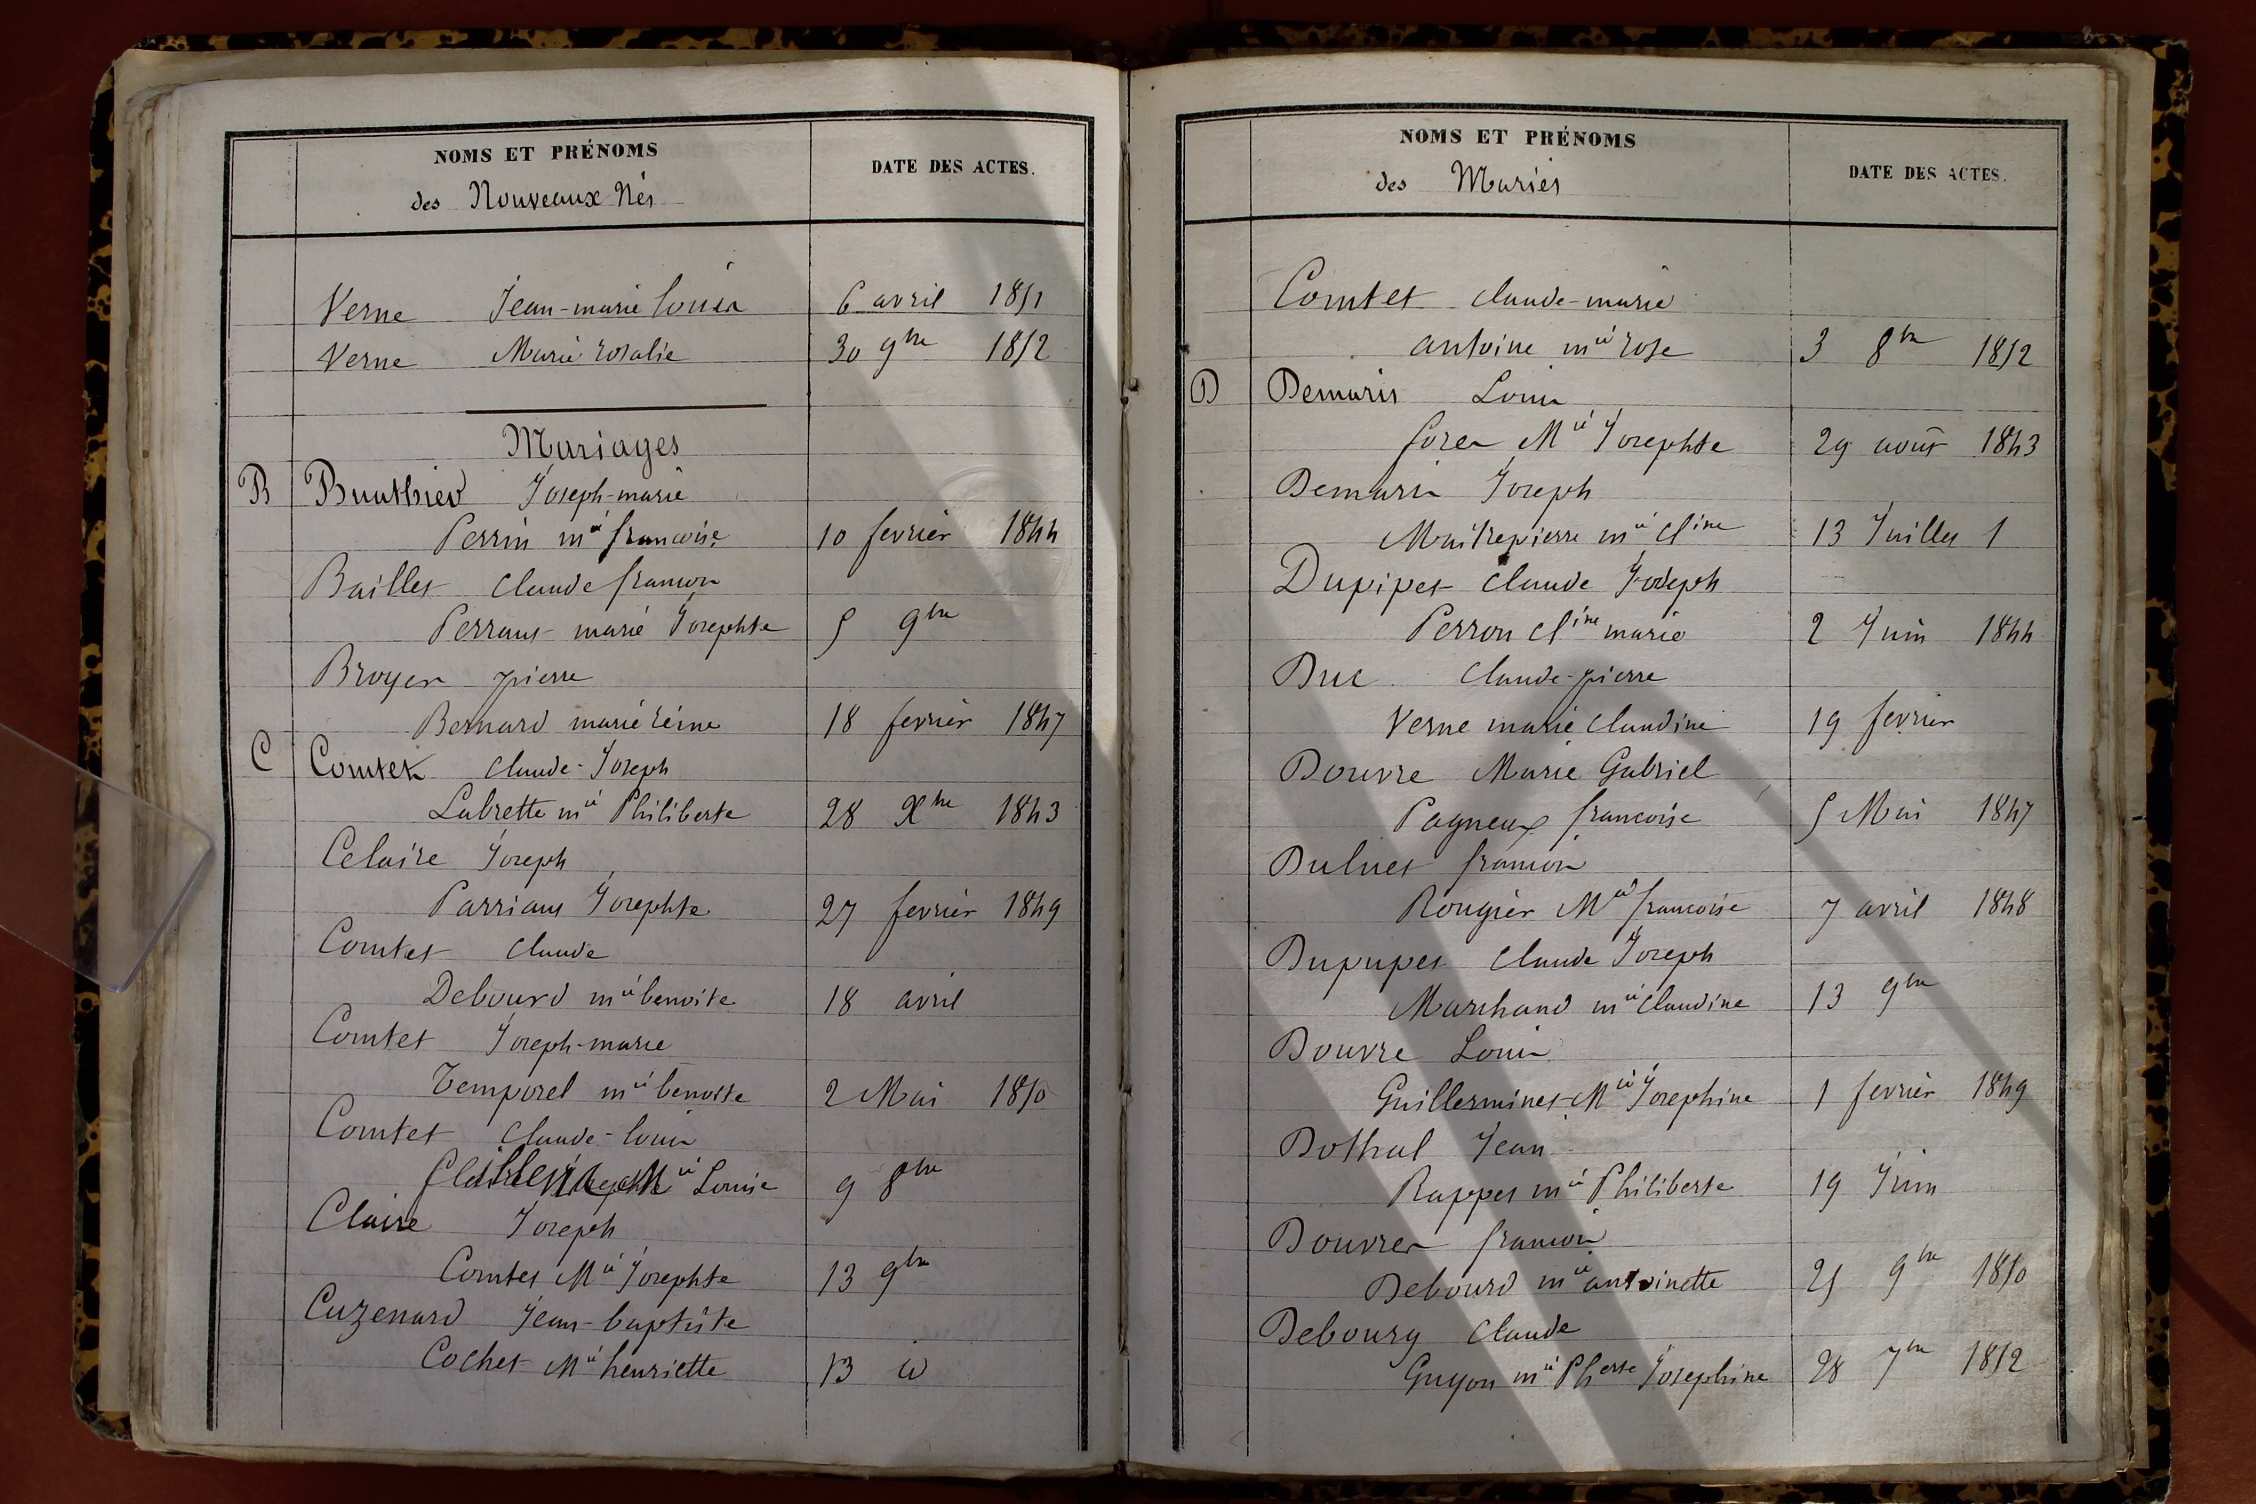 NOMS ET PRÉNOMS
des Nouveaux Nés
DATE DES ACTES.
Verne Jean-marie louis 6 avril 1851
Verne Marie rosalie 30 9bre 1852
Mariages
B Buathier Joseph-marie
Perrin mie francoise 10 fevrier 1844
Baillet Claude francois
Perraut marie Josephte 5 9bre
Broyer pierre
Bernard marie reine 18 fevrier 1847
C Comtet Claude-Joseph
Labrette mie Philiberte 28 Xbre 1843
Celaire Joseph
Parriaut Josephte 27 fevrier 1849
Comtet Claude
Debourd mie benoite 18 avril
Comtet Joseph-marie
Temporel mie benoite 2 Mai 1850
Comtet Claude-louis
Mie Louise 9 8bre
Claire Joseph
Comtet Mie Josephte 13 9bre
Cuzenard Jean-baptiste
Cochet Mie henriette 13 id
NOMS ET PRÉNOMS
des Mariés
DATE DES ACTES.
Comtet claude-marie
antoine mie rose 3 8bre 1852
D Demaris Louis
forer Mie Josephte 29 août 1843
Demaris Joseph
Maitrepierre mie Cline 13 Juillet 1
Dupipet Claude Joseph
Perron Cline marie 2 Juin 1844
Duc Claude-pierre
Verne marie Claudine 19 fevrier
Douvre Marie Gabriel
Pagneux francoise 5 Mai 1847
Dulnet francois
Rougier Mie francoise 7 avril 1848
Dupupet Claude Joseph
Marchand mie Claudine 13 9bre
Douvre Louis
Guillerminet Mie Josephine 1 fevrier 1849
Dothal Jean
Rappet mie Philiberte 19 Juin
Douvrer francois
Debourd mie antoinette 25 9bre 1850
Debourg Claude
Guyon mie Pherte Josephine 28 7bre 1852